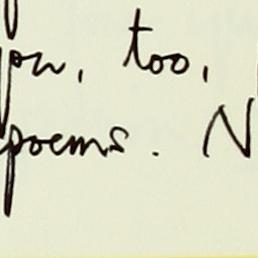 you, too,
poems. N